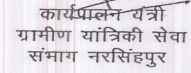 कार्यपालन यंत्री
ग्रामीण यांत्रिकी सेवा
संभाग नरसिंहपुर